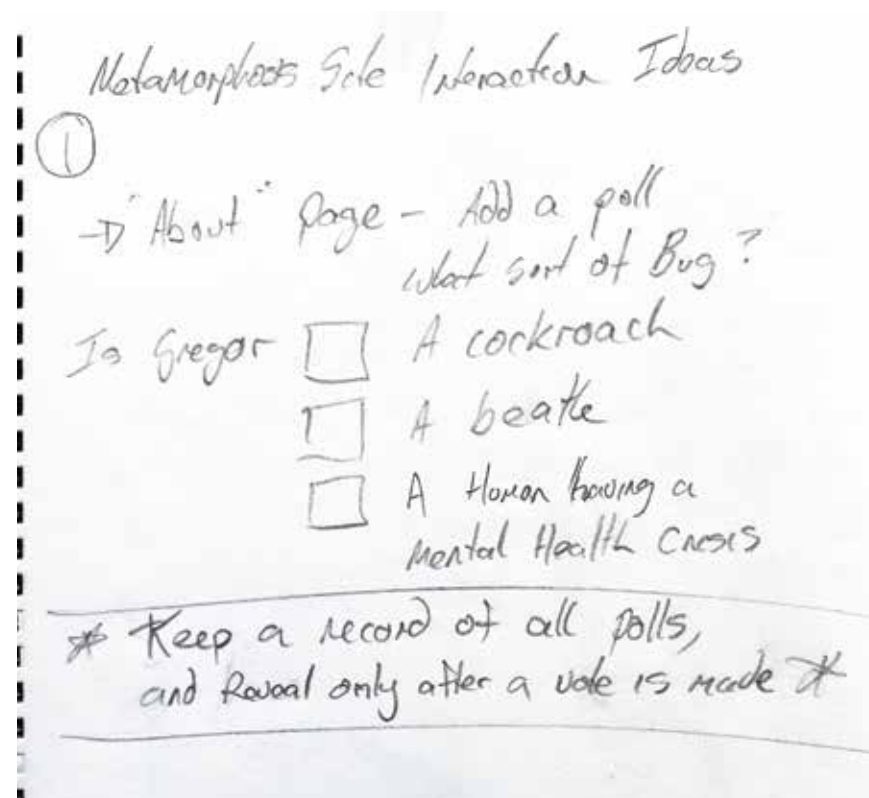 Metamorphosis Site Interaction Ideas
1
→ "About" Page - Add a poll
what sort of Bug?
Is Gregor A cockroach
A beatle
A Human having a
Mental Health Crisis
* Keep a record of all polls,
and Reveal only after a vote is made *